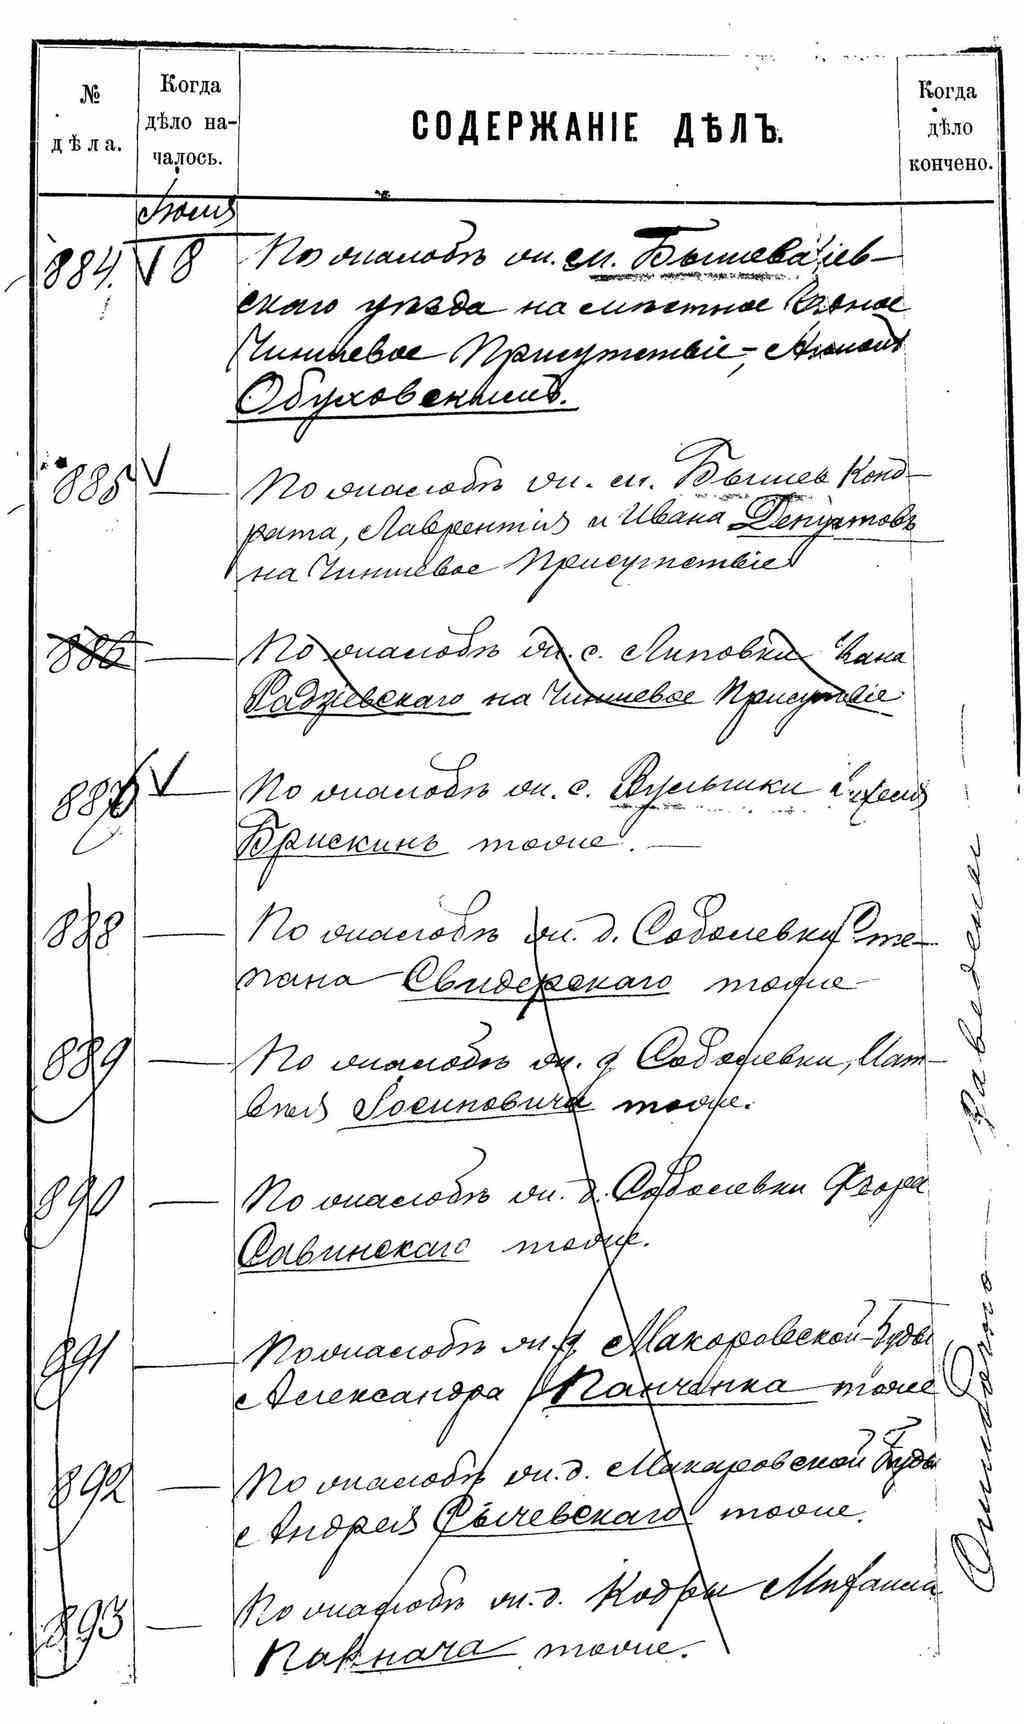 № дѣла.
Когда дѣло на-
чалось.
СОДЕРЖАНІЕ ДѢЛЪ.
Когда дѣло кончено.
884. 8 По жалобѣ жи. м. Бышева
скаго уѣзда на мѣстное
Чиншевое Присутствіе,
Обуховскимъ.
885 — По жалобѣ жи. м. Бышев Конд-
рата, Лаврентія и Ивана Депутатовъ
на Чиншевое Присутствіе
886 — По жалобѣ жи. с. Липовки
Радзіевскаго на Чиншевое Присутствіе
886 — По жалобѣ жи. с.
Брискинъ тоже. —
888 — По жалобѣ жи. д. Соболевки Сте-
пана Свидерскаго тоже —
889 — По жалобѣ жи. д. Соболевки, Мат-
вѣя Госиповича тоже.
890 — По жалобѣ жи. д. Соболевки
Савинскаго тоже.
891 — По жалобѣ жи. д. Макаровской-Буды
Александра Панченка тоже
892 — По жалобѣ жи. д. Макаровской Буды
Андрея Сычевскаго тоже.
893 — По жалобѣ жи. д. Кодры
тоже.
Ошибочно — заведены —